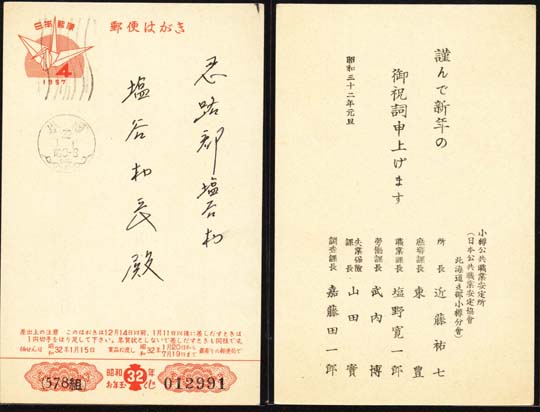 日本郵便
郵便はがき
4
1957
忍路郡塩谷村
塩谷村長殿
差出上の注意 このはがきは12月14日以前、1月11日以後に差しだすときは
1円切手をはり足して下さい。
抽せんは 昭和32年1月15日
賞品お渡し 昭和32年 1月20日から 7月19日まで
最寄りの郵便局で
(578組)
昭和32年
お年玉
012991
謹んで新年の
御祝詞申上げます
昭和三十二年元旦
小樽公共職業安定所
(日本公共職業安定協会
北海道支部小樽分會)
所長 近藤祐七
庶務課長 東豊
職業課長 塩野寛一郎
労働課長 武内博
失業保険課長 山田實
調査課長 嘉藤田一郎